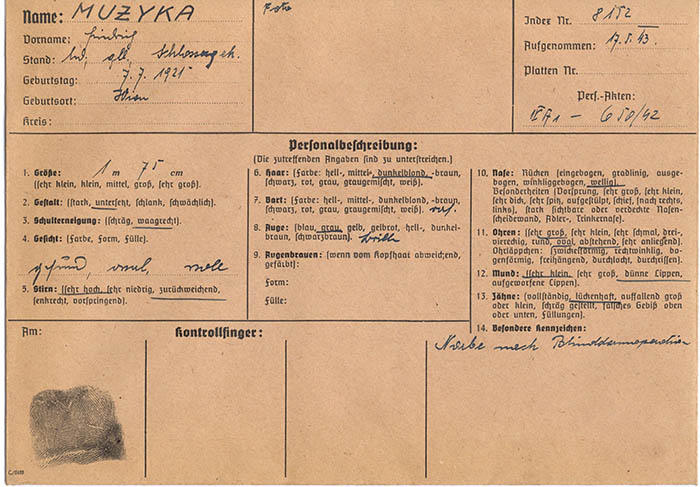 Name: MUZYKA
Vorname: Jindrich
Stand: led, glb, Schlossergeh.
Geburtstag: 7.7.1921
Geburtsort: Wien
Kreis:
Foto
Index Nr. 8152
Aufgenommen: 17.5.43.
Platten Nr.
Pers.-Akten:
IIA1 - 650/42
Personalbeschreibung:
(Die zutreffenden Angaben sind zu unterstreichen.)
1. Größe: 1 m 75 cm
(sehr klein, klein, mittel, groß, sehr groß).
2. Gestalt: (stark, untersetzt, schlank, schwächlich).
3. Schulterneigung: (schräg, waagrecht).
4. Gesicht: (Farbe, Form, Fülle).
gesund, oval, volle
5. Stirn: (sehr hoch, sehr niedrig, zurückweichend,
senkrecht, vorspringend).
6. Haar: (Farbe: hell-, mittel-, dunkelblond, -braun,
schwarz, rot, grau, graugemischt, weiß).
7. Bart: (Farbe: hell-, mittel-, dunkelblond, -braun,
schwarz, rot, grau, graugemischt, weiß). ras.
8. Auge: (blau, grau, gelb, gelbrot, hell-, dunkel-
braun, schwarzbraun). Brille
9. Augenbrauen: (wenn vom Kopfhaar abweichend,
gefärbt):
Form:
Fülle:
10. Nase: Rücken (eingebogen, gradlinig, ausge-
bogen, winkliggebogen, wellig).
Besonderheiten (Vorsprung, sehr groß, sehr klein,
sehr dick, sehr spitz, aufgestülpt, schief, (nach rechts,
links), stark sichtbar oder verdeckte Nasen-
scheidewand, Adler-, Trinkernase).
11. Ohren: (sehr groß, sehr klein, sehr schmal, drei-,
viereckig, rund, oval, abstehend, sehr anliegend).
Ohrläppchen: (zwickelförmig, rechtwinklig, bo-
genförmig, freihängend, durchlocht, durchrissen).
12. Mund: (sehr klein, sehr groß, dünne Lippen,
aufgeworfene Lippen).
13. Zähne: (vollständig, lückenhaft, auffallend groß
oder klein, schräg gestellt, falsches Gebiß oben
oder unten, Füllungen).
14. Besondere Kennzeichen:
Narbe nach Blinddarmoperation
Am:
Kontrollfinger: